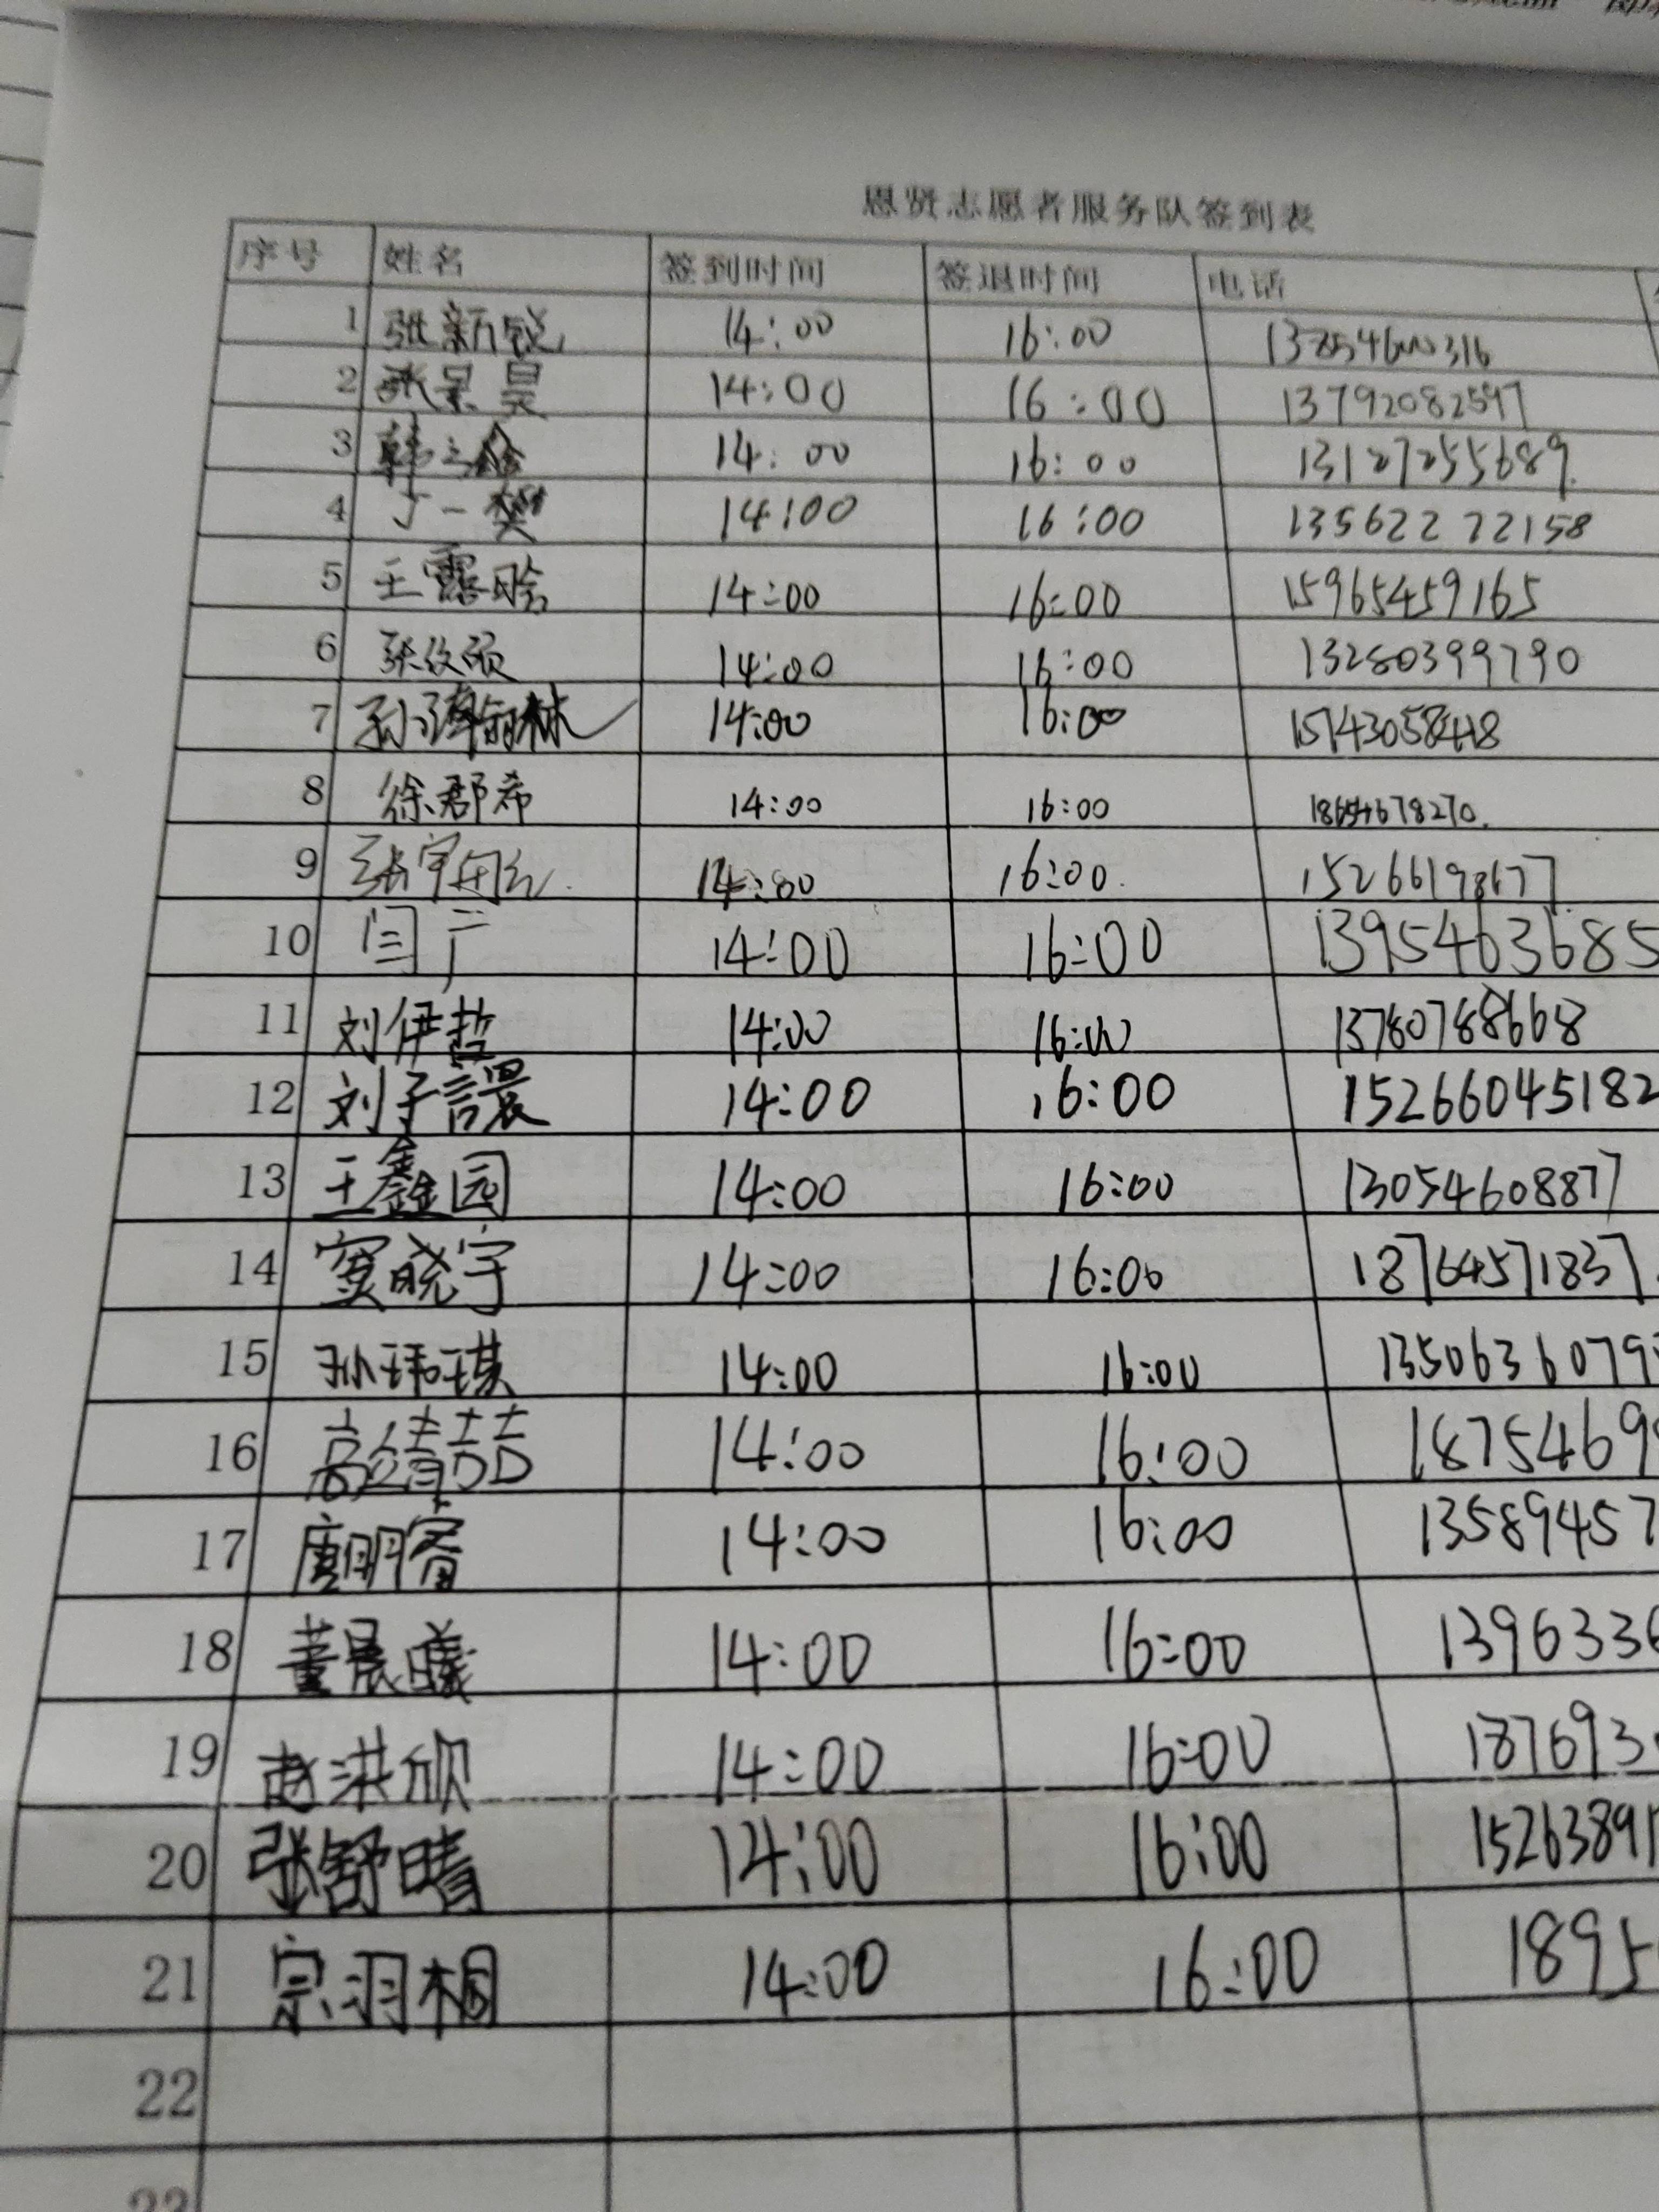 恩贤志愿者服务队签到表
序号 姓名 签到时间 签退时间 电话
1 张新锐 14:00 16:00
2 张景昊 14:00 16:00 13792082597
3 14:00 16:00 13127255689
4 丁一樊 14:00 16:00 13562272158
5 王露晗 14:00 16:00 15965459165
6 14:00 16:00 13280399790
7 14:00 16:00
8 徐郡希 14:00 16:00
9 14:00 16:00 15266198677
10 闫 14:00 16:00 1395463685
11 刘伊哲 14:00 16:00 13780788668
12 刘子譞 14:00 16:00 15266045182
13 王鑫园 14:00 16:00 13054608877
14 窦晓宇 14:00 16:00 18764571837
15 孙玮琪 14:00 16:00 1350636079
16 高婧喆 14:00 16:00 1875469
17 唐明睿 14:00 16:00 13589457
18 董晨曦 14:00 16:00 139633
19 赵洪欣 14:00 16:00 187693
20 张舒晴 14:00 16:00 15263891
21 宗羽桐 14:00 16:00 1895
22
23